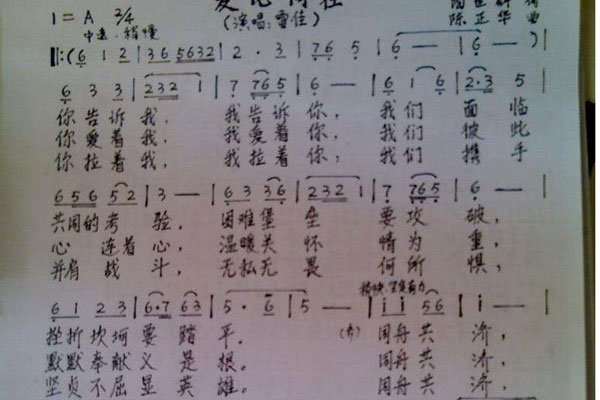 爱心同在
1=A 2/4
(演唱：雷佳)
中速 稍慢
陈 正 华 曲
‖:( 6 1 2 | 3 6 5 6 3 2 | 2 · 3 | 7 6 5 | 6 — | 6 — ) |
6 3 3 | 2 3 2 | 7 7 6 5 | 6 — | 6 1 6 | 2 · 3 5
你 告 诉 我， 我 告 诉 你， 我 们 面 临
你 爱 着 我， 我 爱 着 你， 我 们 彼 此
你 拉 着 我， 我 拉 着 你； 我 们 携 手
6 5 6 5 2 | 3 — | 6 3 3 6 | 2 3 2 | 7 7 6 5 | 6 — |
共同的考 验， 困难堡 垒 要 攻 破，
心 连着 心， 温暖关 怀 情 为 重，
并肩 战 斗， 无私无 畏 何 所 惧，
6 1 2 3 | 6 · 7 6 3 | 5 · 6 | 5 — | i i 5 6 | i — |
挫 折 坎 坷 要 踏 平。 (齐) 同舟 共 济，
默 默 奉 献 义 是 根。 同舟 共 济，
坚 贞 不 屈 显 英 雄。 同舟 共 济，